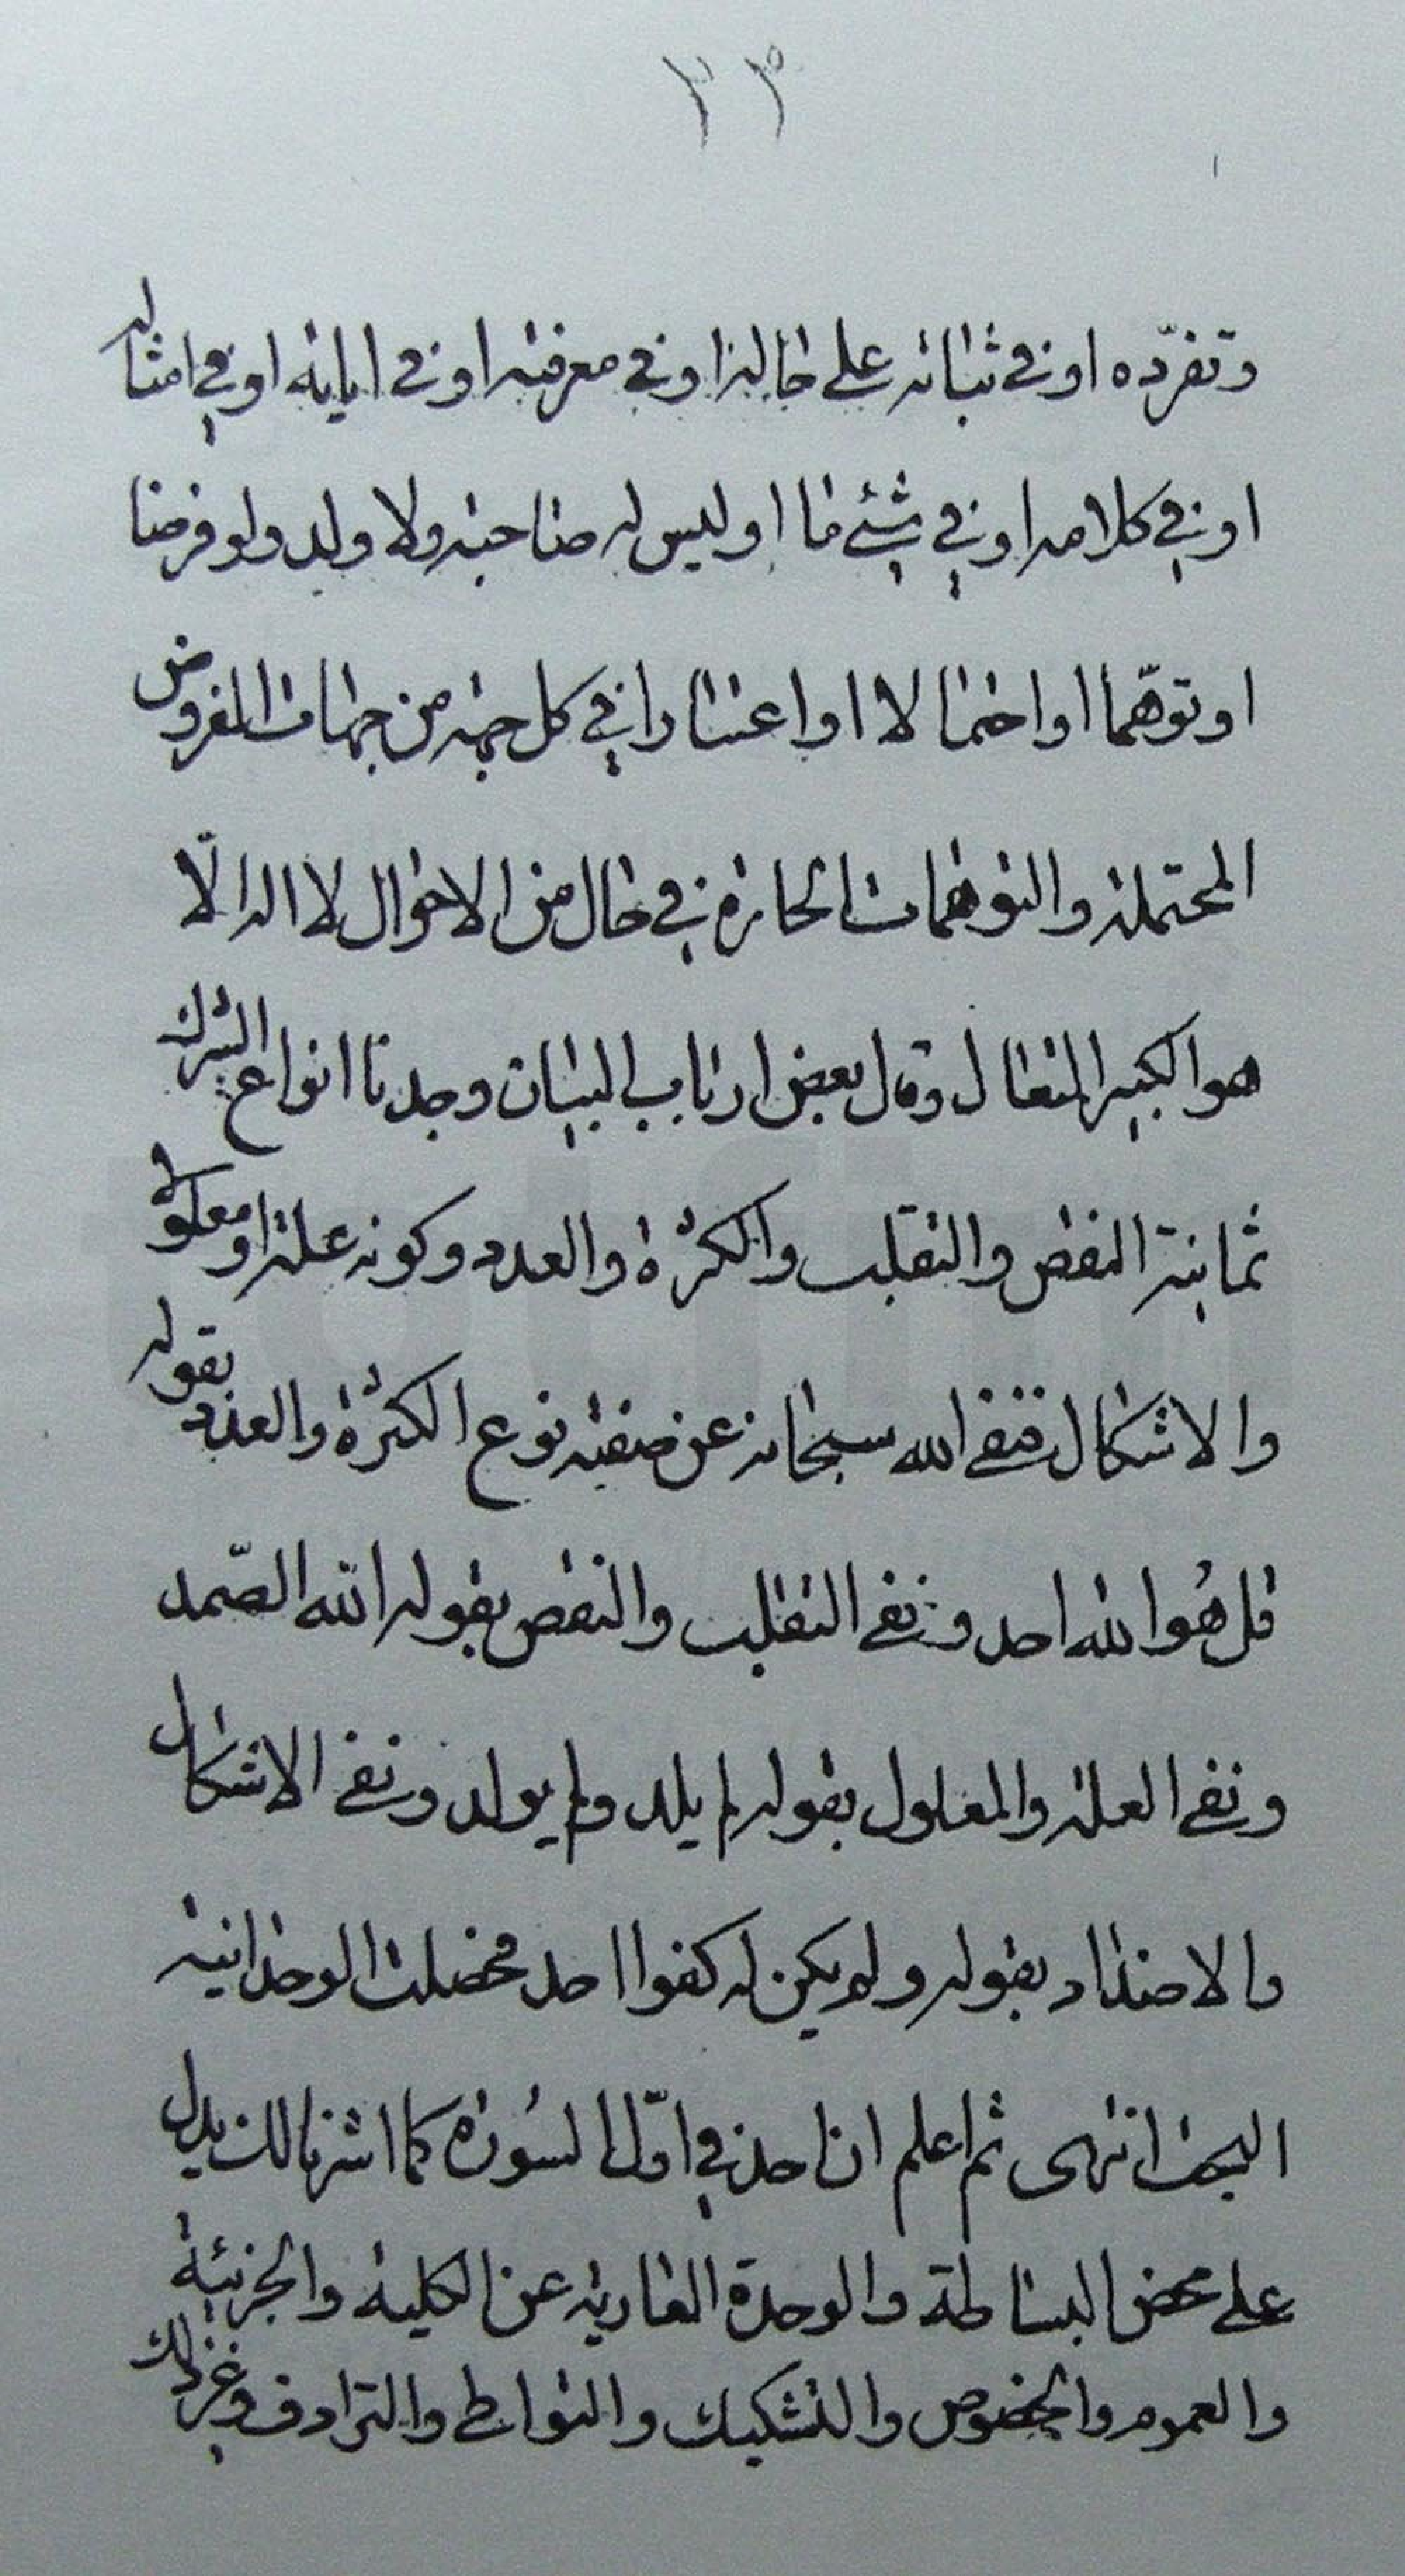 ٢٣
وتفرّده او فی ثباته علی حالة او فی معرفته او فی ایاته او فی امثاله
او فی کلامه او فی شیٔ ما او لیس له صاحبة ولا ولد ولو فرضا
او توهّما او احتمالا او اعتبارا فی کل جهة من جهات المفروض
المحتملة والتوهمات الحائرة فی حال من الاحوال لا اله الّا
هو الکبیر المتعال وقال بعض ارباب البیان وجدنا انواع الشرک
ثمانیة النقص والتقلب والکثرة والعدد وکونه علة او معلولا
والاشکال فنفی الله سبحانه عن صفته نوع الکثرة والعدد بقوله
قل هُو الله احد ونفی التقلب والنقص بقوله الله الصّمد
ونفی العلة والمعلول بقوله لم یلد ولم یولد ونفی الاشکال
والاضداد بقوله ولم یکن له کفوا احد فحصلت الوحدانیة
البحت انتهی ثم اعلم ان احد فی اوّل السُورة کما اشرنا لک یدل
علی محض البساطة والوحدة العاریة عن الکلیة والجزئیة
والعموم والخصوص والتشکیک والتواطی والترادف وغیر ذلک